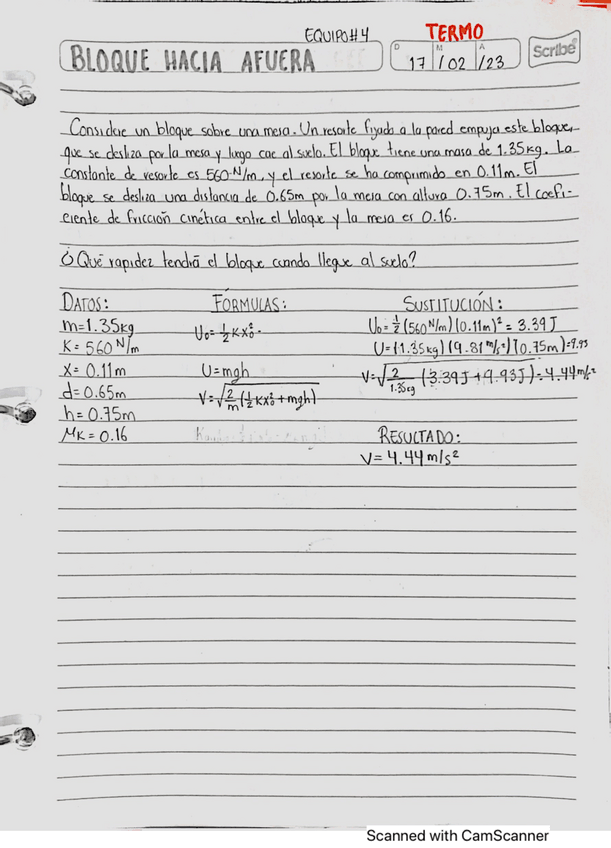 EQUIPO#4 TERMO
BLOQUE HACIA AFUERA
D M A
17/02/23
Scribe
Considere un bloque sobre una mesa. Un resorte fijado a la pared empuja este bloque,
que se desliza por la mesa y luego cae al suelo. El bloque tiene una masa de 1.35kg. La
constante de resorte es 560 N/m, y el resorte se ha comprimido en 0.11m. El
bloque se desliza una distancia de 0.65m por la mesa con altura 0.75m. El coefi-
ciente de fricción cinética entre el bloque y la mesa es 0.16.
¿Qué rapidez tendrá el bloque cuando llegue al suelo?
DATOS:
m=1.35kg
K=560 N/m
x=0.11m
d=0.65m
h=0.75m
μK=0.16
FÓRMULAS:
U₀=½KX₀².
U=mgh
V=√(2/m(½KX₀²+mgh))
SUSTITUCIÓN:
U₀=½(560 N/m)(0.11m)²=3.39J
U=(1.35kg)(9.81 m/s²)(0.75m)=9.93
V=√(2/1.35kg(3.39J+9.93J))=4.44m/s²
RESULTADO:
V=4.44m/s²
Scanned with CamScanner